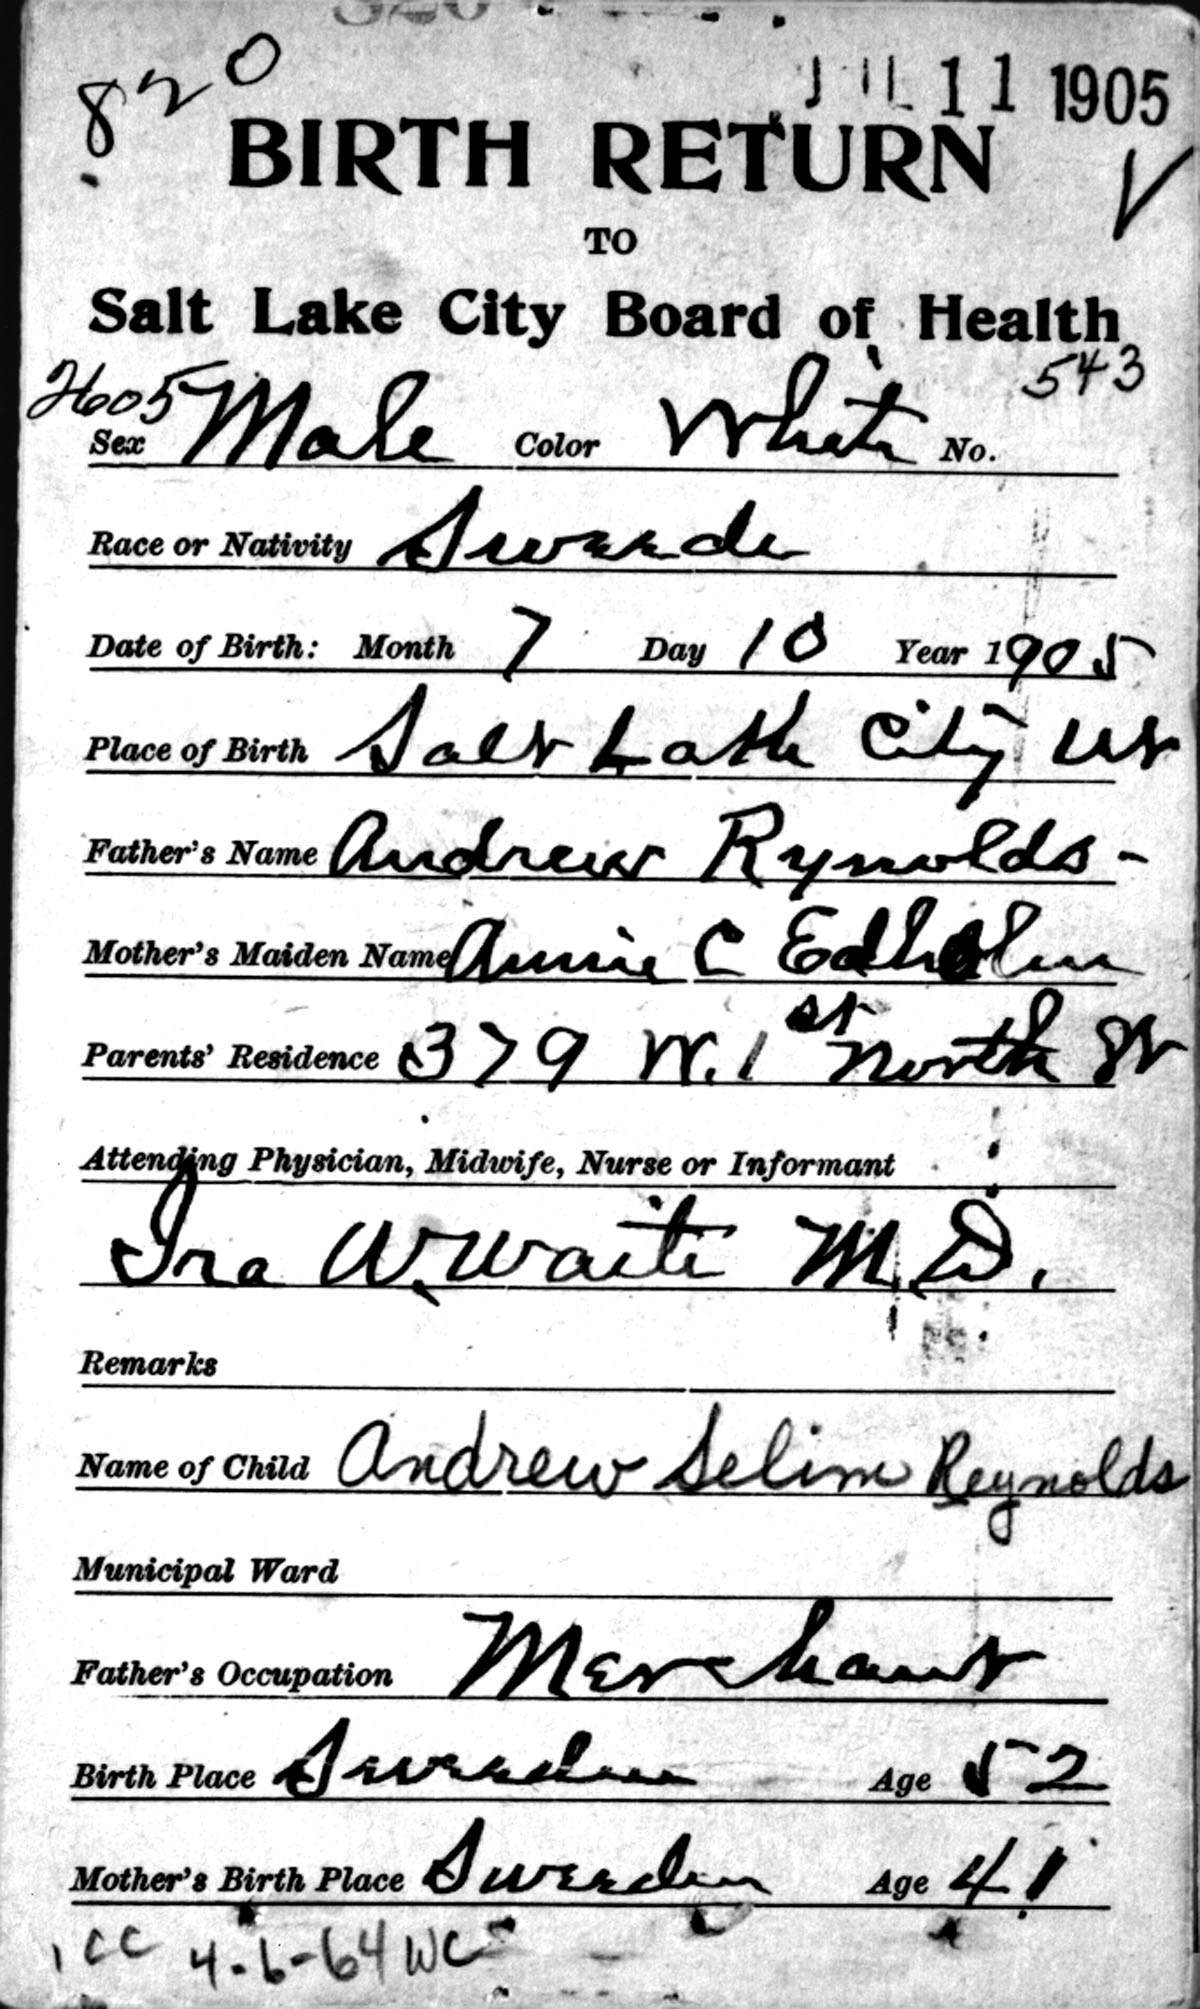 820
JUL 11 1905
BIRTH RETURN
TO
Salt Lake City Board of Health
2605 543
Sex Male Color White No.
Race or Nativity Sweede
Date of Birth: Month 7 Day 10 Year 1905
Place of Birth Salt Lake City Ut
Father's Name Andrew Rynolds -
Mother's Maiden Name Annie C Edholm
Parents' Residence 379 W. 1st North St
Attending Physician, Midwife, Nurse or Informant
Ira W. Waite M.D.
Remarks
Name of Child Andrew Selim Reynolds
Municipal Ward
Father's Occupation Merchant
Birth Place Sweeden Age 52
Mother's Birth Place Sweeden Age 41
1 CC 4-6-64 WC